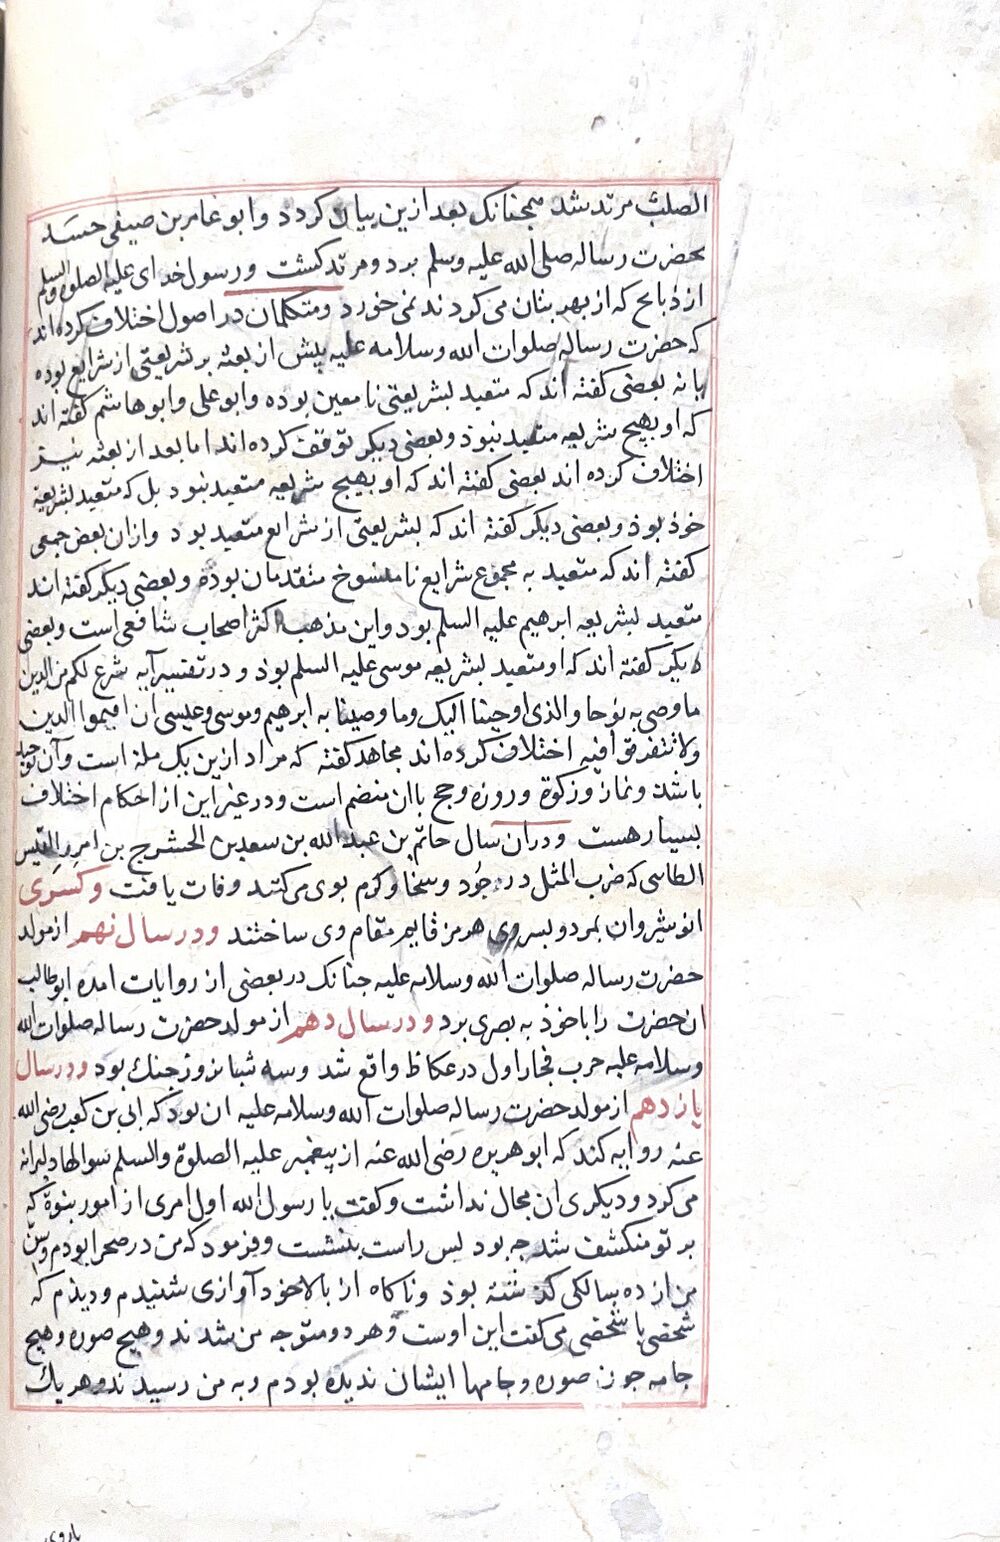 الصلت مرتد شد همچنانک بعد ازین بیان کردد وابو عامر بن صیفی حسد
بحضرت رساله صلی الله علیه وسلم برد ومرتد کشت ورسول خدای علیه الصلوة والسلم
از ذبایح که از بهر بتان می کردند نمی خورد ومتکلمان در اصول اختلاف کرده اند
که حضرت رساله صلوات الله وسلامه علیه پیش از بعثه بر شریعتی از شرایع بوده
یا نه بعضی کفته اند که متعبد بشریعتی نا معین بوده وابو علی وابو هاشم کفته اند
که او بهیچ شریعه متعبد نبوذ وبعضی دیکر توقف کرده اند اما بعد از بعثه نیز
اختلاف کرده اند بعضی کفته اند که او بهیچ شریعه متعبد نبود بل که متعبد بشریعة
خوذ بوذ وبعضی دیکر کفته اند که بشریعتی از شرایع متعبد بود وازان بعض جمعی
کفته اند که متعبد به مجموع شرایع نا منسوخ متقدمان بوده وبعضی دیکر کفته اند
متعبد بشریعه ابرهیم علیه السلم بود واین مذهب اکثر اصحاب شافعی است وبعضی
دیکر کفته اند که او متعبد بشریعه موسی علیه السلم بوذ و در تفسیر آیه شرع لکم من الدین
ما وصی به نوحا والذی اوحینا الیک وما وصینا به ابرهیم وموسی وعیسی ان اقیموا الدین
ولا تتفرقوا فیه اختلاف کرده اند مجاهد کفته که مراد ازین یک ملة است وآن توحید
باشد ونماز وزکوة وروزه وحج باان منضم است ودر غیر این از احکام اختلاف
بسیار هست ودران سال حاتم بن عبد الله بن سعد بن الحشرج بن امرء القیس
الطاسی که ضرب المثل در جود وسخا وکرم بوی می کنند وفات یافت وکسری
انوشیروان بمرد وبسر وی هرمز قایم مقام وی ساختند ودر سال نهم از مولد
حضرت رساله صلوات الله وسلامه علیه جنانک در بعضی از روایات امده ابو طالب
ان حضرت را با خوذ به بصری برد ودر سال دهم از مولد حضرت رساله صلوات الله
وسلامه علیه حرب فجار اول در عکاظ واقع شد وسه شبانروز جنك بود ودر سال
یازدهم از مولد حضرت رساله صلوات الله وسلامه علیه ان بود که ابی بن کعب رضی الله
عنه روایه کند که ابو هریره رضی الله عنه از پیغمبر علیه الصلوة والسلم سوالها دلیرانه
می کرد ودیکری ان مجال نداشت وکفت یا رسول الله اول امری از امور نبوة که
بر تو منکشف شد جه بود پس راست بنشست وفرمود که من در صحرا بودم وسن
من از ده سالکی کذشته بوذ وناکاه از بالا خود آوازی شنیدم ودیذم که
شخصی با شخصی می کفت این اوست وهر دو متوجه من شدند وهیچ صوره وهیچ
جامه جون صوره وجامها ایشان ندیذه بودم وبه من رسیدند وهر یك
باروی